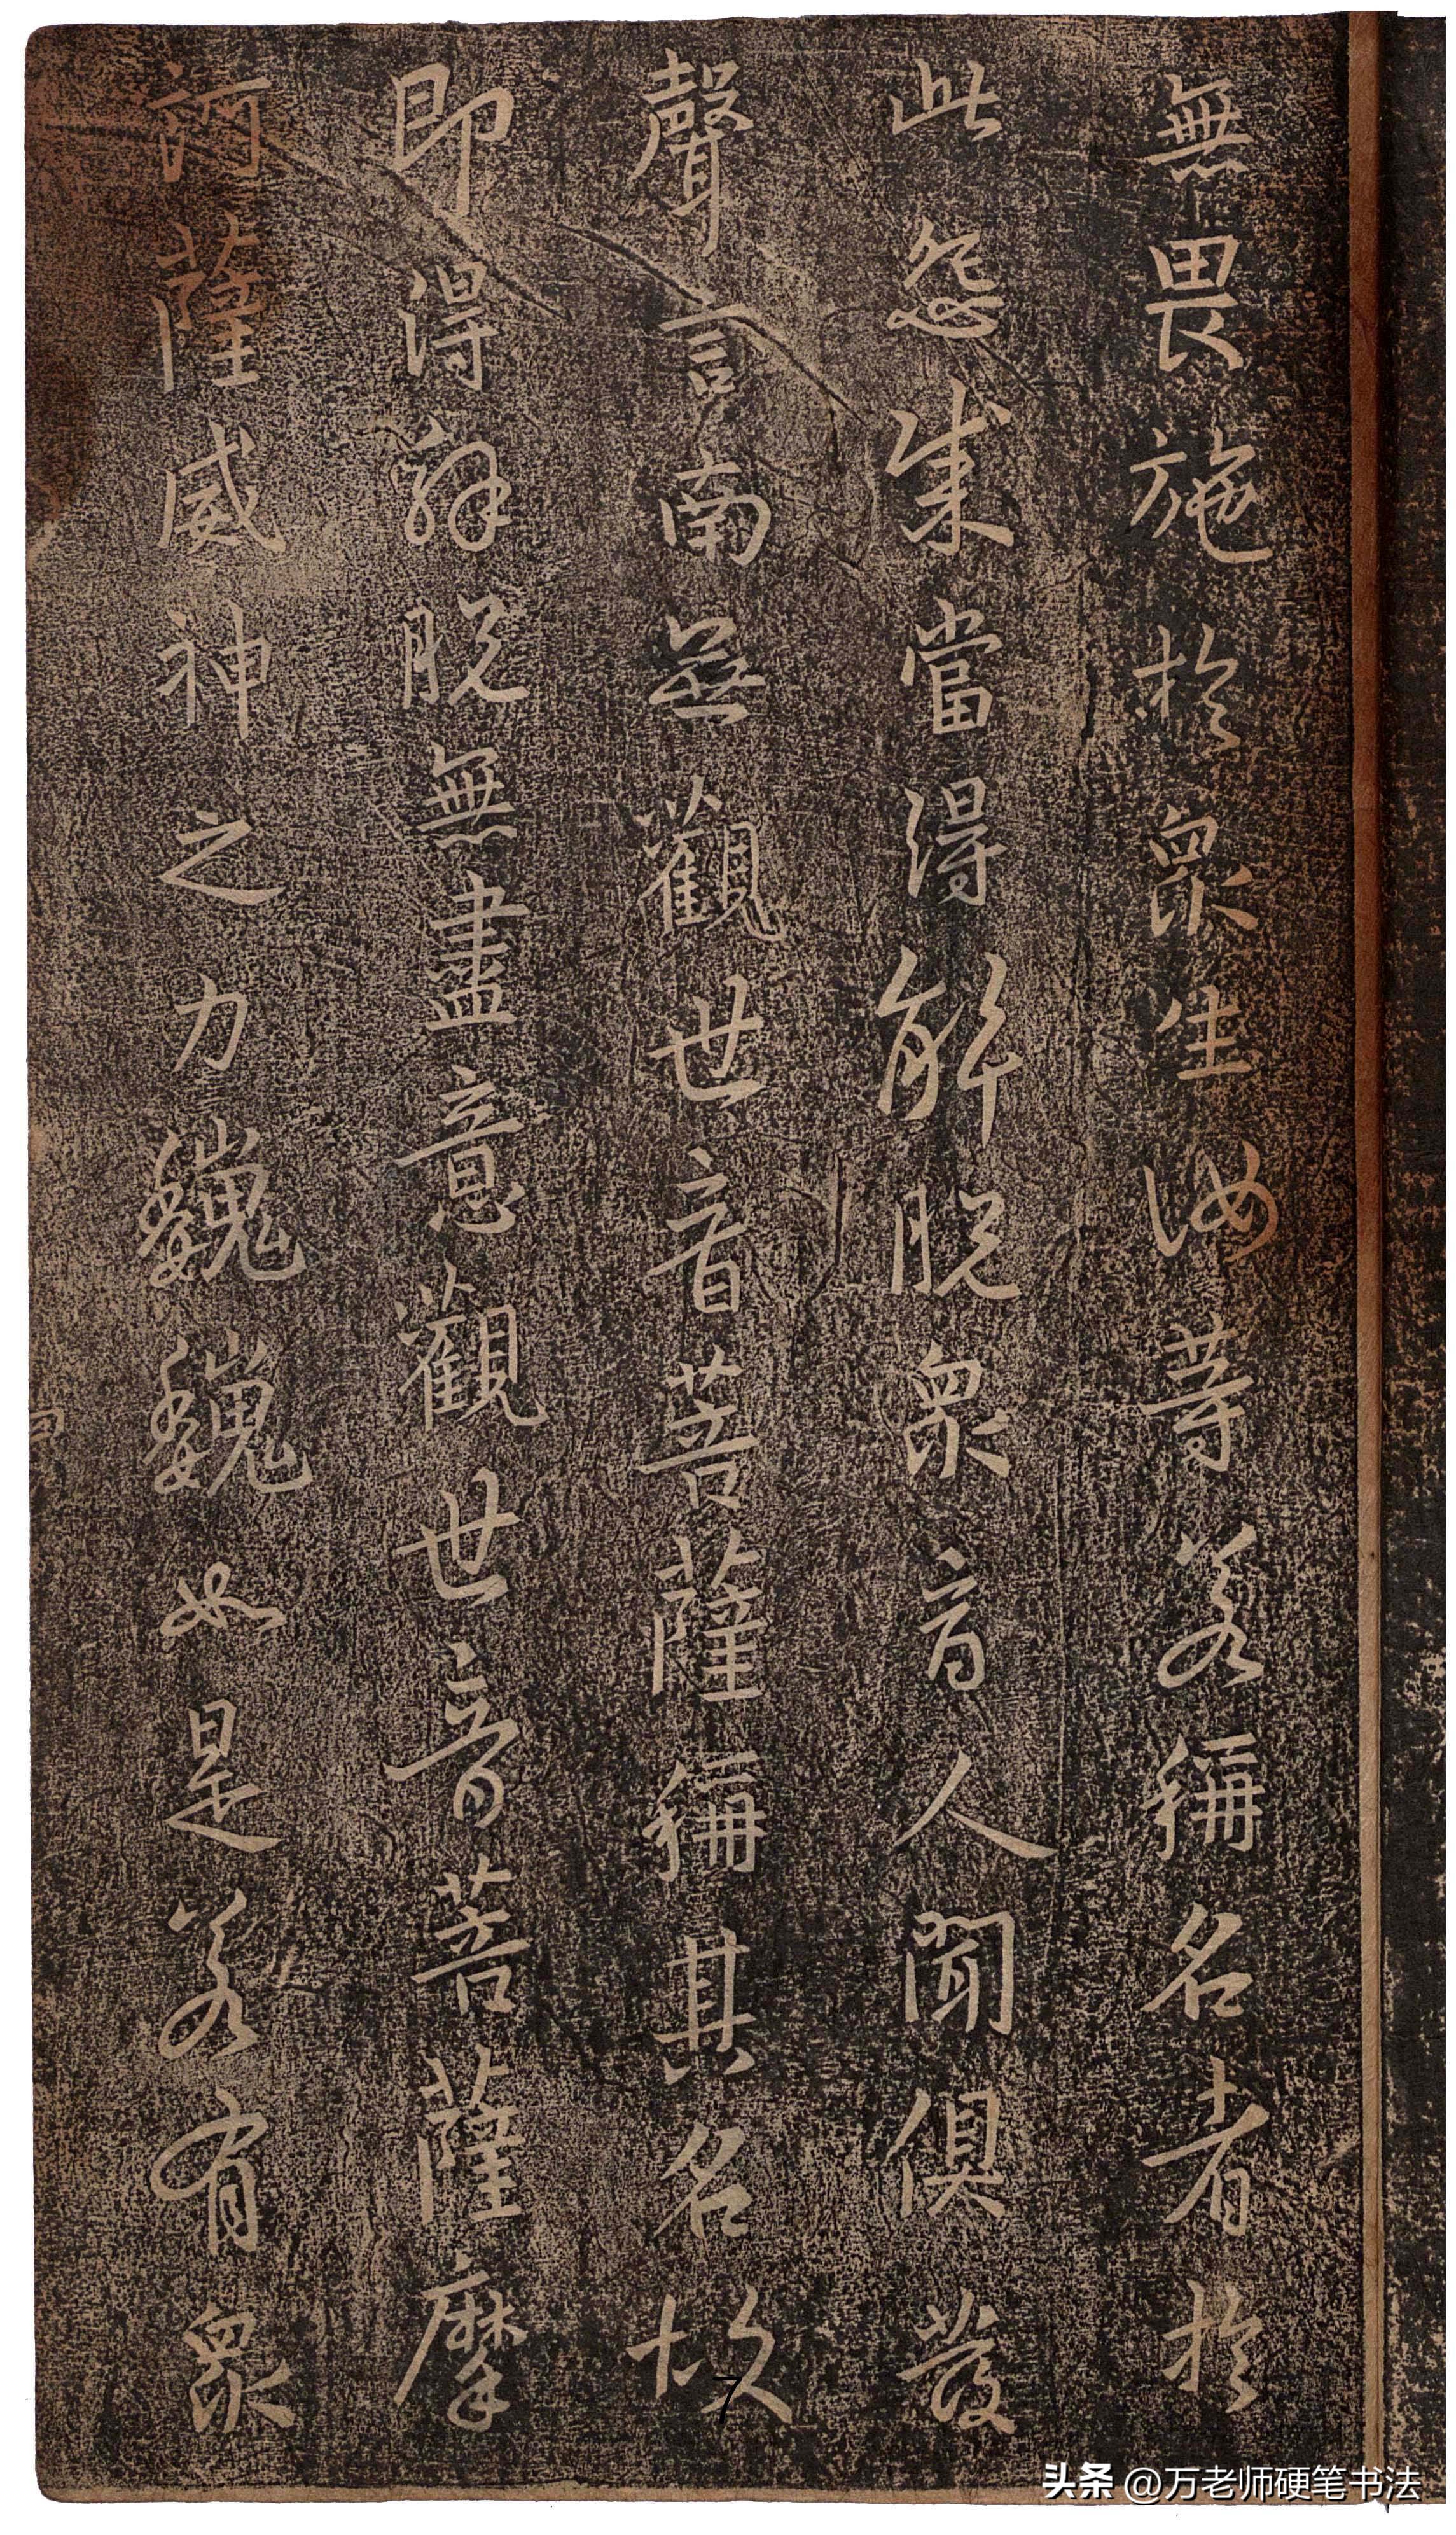 無畏施於眾生汝等若稱名者於
此怨賊當得解脫眾商人聞俱發
聲言南無觀世音菩薩稱其名故
即得解脫無盡意觀世音菩薩摩
訶薩威神之力巍巍如是若有眾
7
头条 @万老师硬笔书法